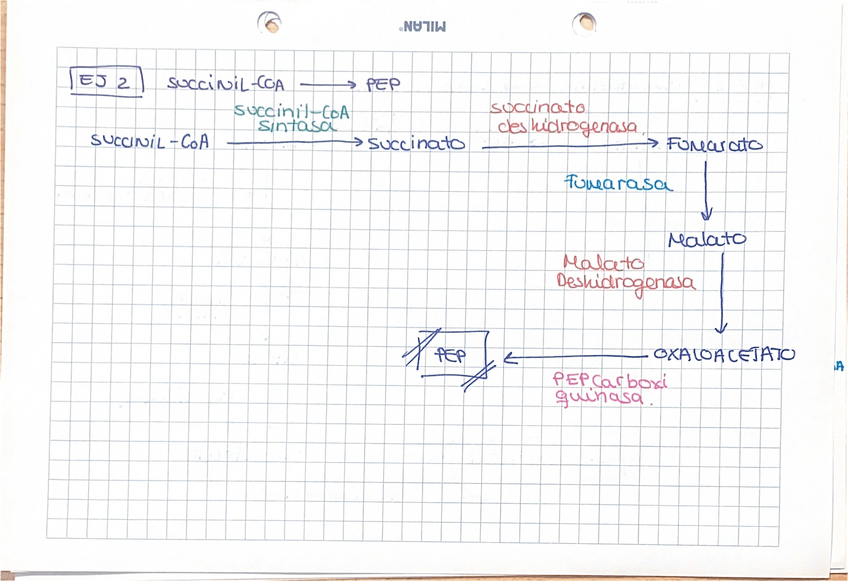 MILAN®
EJ 2 SUCCINIL-COA → PEP
SUCCINIL-CoA
succinil-CoA
sintasa
succinato
succinato
deshidrogenasa.
Fumarato
Fumarasa
Malato
Malato
Deshidrogenasa
OXALOACETATO
PEPCarboxi
quinasa.
PEP